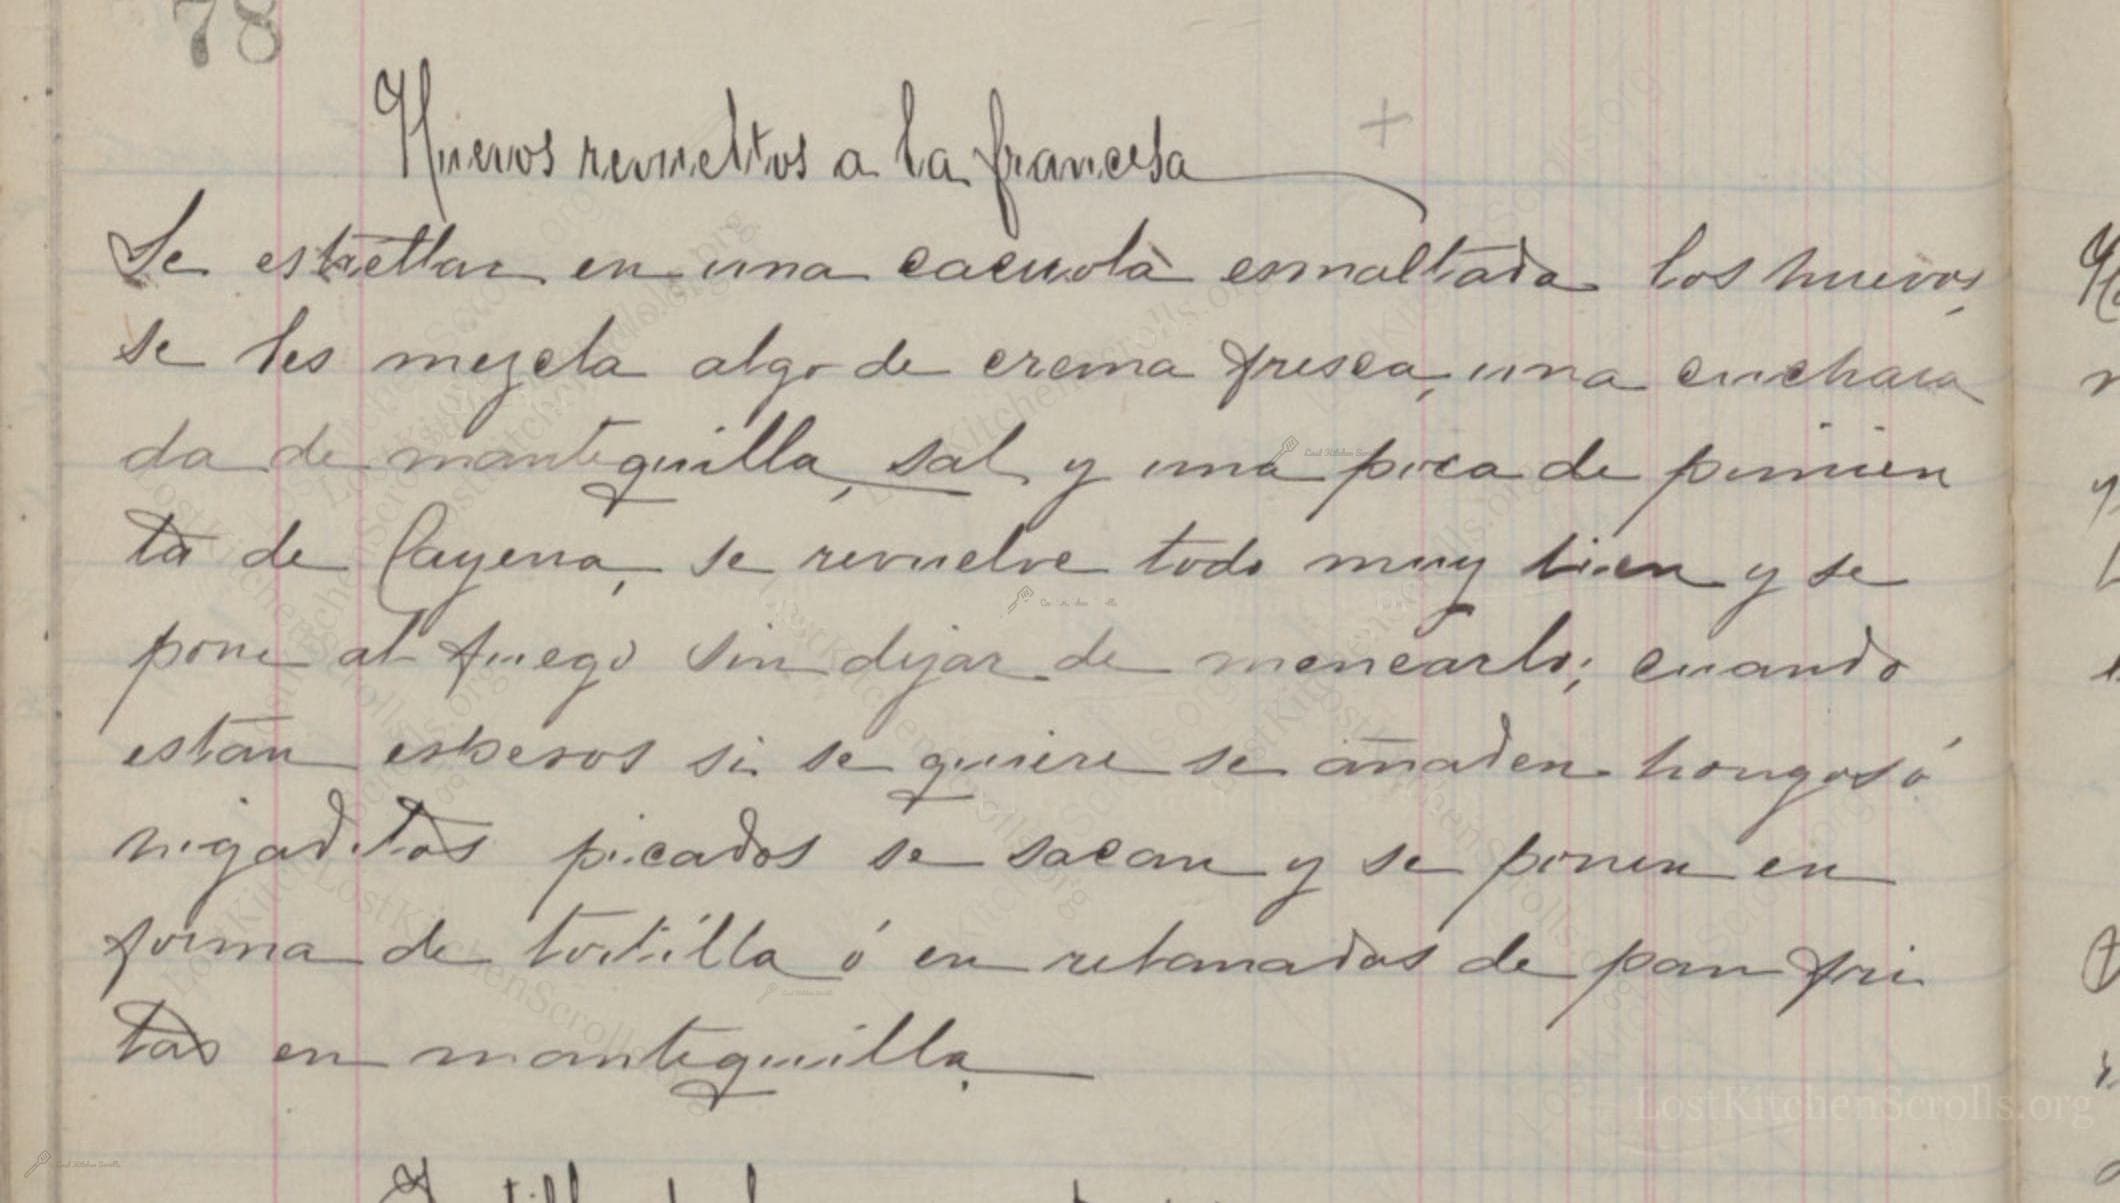 78
Huevos revueltos a la francesa
Se estrellan en una cacerola esmaltada los huevos,
se les mezcla algo de crema fresca, una cuchara
da de mantequilla, sal y una poca de pimien
ta de Cayena, se revuelve todo muy bien y se
pone al fuego sin dejar de menearlo; cuando
están espesos si se quiere se añaden hongos ó
higaditos picados se sacan y se ponen en
forma de tortilla ó en rebanadas de pan fri
tas en mantequilla.
LostKitchenScrolls.org